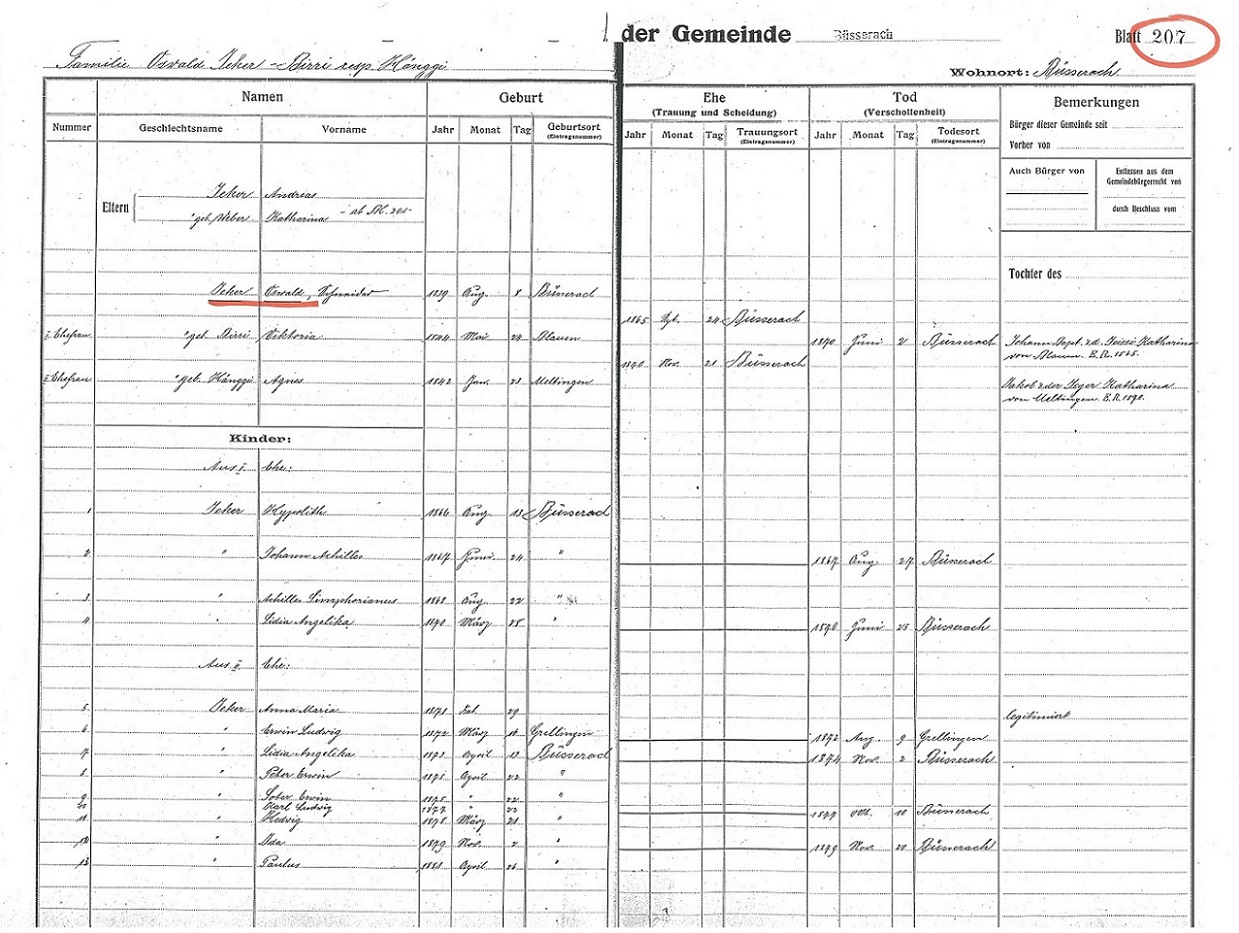 der Gemeinde Büsserach Blatt 207
Familie Oswald Jeker - Birri resp. Hänggi
Wohnort: Büsserach
Namen Geburt Ehe (Trauung und Scheidung) Tod (Verschollenheit) Bemerkungen
Nummer Geschlechtsname Vorname Jahr Monat Tag Geburtsort (Eintragsnummer) Jahr Monat Tag Trauungsort (Eintragsnummer) Jahr Monat Tag Todesort (Eintragsnummer)
Bürger dieser Gemeinde seit
Vorher von
Auch Bürger von
Entlassen aus dem Gemeindebürgerrecht von
durch Beschluss vom
Eltern
Jeker Andreas
" geb. Weber Katharina - ab Bl. 205 -
Tochter des
Jeker Oswald, Schneider 1839 Aug. 8 Büsserach
1865 Spt. 24 Büsserach
I Ehefrau " geb. Birri Viktoria 1844 Mai 24 Blauen 1890 Juni 2 Büsserach Johann Bapt. u.d. Katharina
von Blauen. E.R. 1865.
1890 Nov. 21 Büsserach
II Ehefrau " geb. Hänggi Agnes 1842 Jan. 21 Meltingen Jakob u. der Jeger Katharina
von Meltingen. E.R. 1890.
Kinder:
Aus I. Ehe:
1 Jeker Hypolith 1866 Aug. 13 Büsserach
2 " Johann Achilles 1867 Juni 24 " 1867 Aug. 27 Büsserach
3 " Achilles Simphorianus 1868 Aug. 22 "
4 " Lidia Angelika 1890 März 28 " 1890 Juni 25 Büsserach
Aus II. Ehe:
5 Jeker Anna Maria 29 legitimiert
6 " Erwin Ludwig 1892 März Grellingen 1892 Aug. 9 Grellingen
7 " Lidia Angelika April 13 Büsserach 1894 Nov. 2 Büsserach
8 " Peter Erwin April 22 "
9 " Soter Erwin " 22 "
10 Karl Ludwig
11 " Hedwig 1878 März 21 " Büsserach
12 " Ida 1879 Nov. 2 " Nov. 20 Büsserach
13 " Paulus April 26